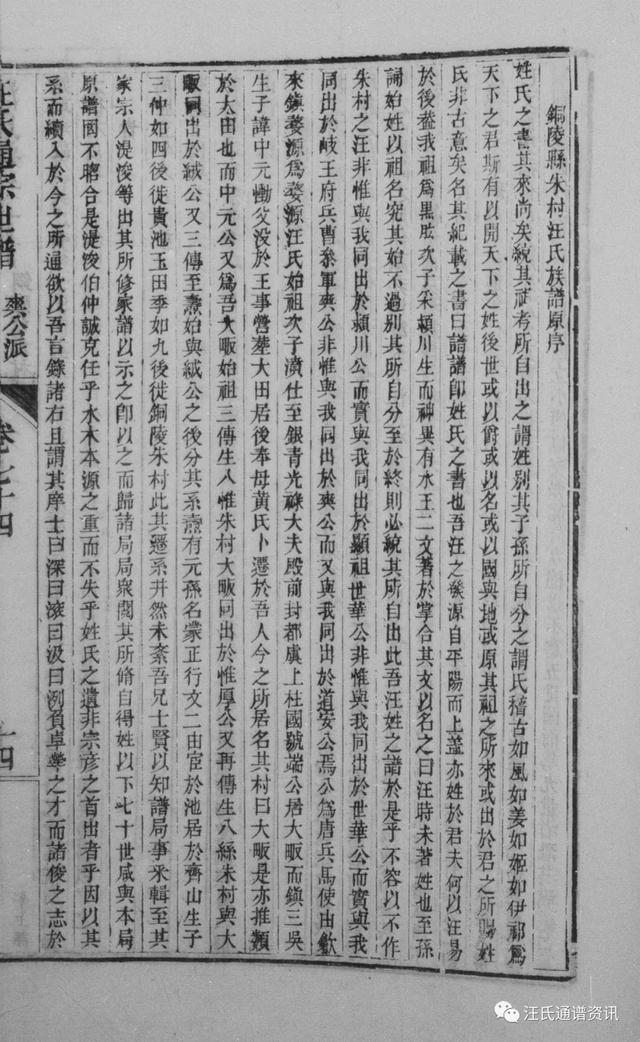 銅陵縣朱村汪氏族譜原序
姓氏之書其來尚矣統其祖考所自出之謂姓別其子孫所自分之謂氏稽古如風如姜如姬如伊祁為
天下之君斯有以開天下之姓後世或以爵或以名或以國與地或原其祖之所來或出於君之所賜姓
氏非古意矣名其紀載之書曰譜譜即姓氏之書也吾汪之發源自平陽而上蓋亦姓於君夫何以汪易
於後葢我祖為黑肱次子采潁川生而神異有水王二文著於掌合其文以名之曰汪時未著姓也至孫
誦始姓以祖名究其始不過別其所自分至於終則必統其所自出此吾汪姓之譜於是乎不容以不作
朱村之汪非惟與我同出於潁川公而實與我同出於顯祖世華公非惟與我同出於世華公而實與我
同出於岐王府兵曹叅軍爽公非惟與我同出於爽公而又與我同出於道安公焉公為唐兵馬使由歙
來鎮婺源為婺源汪氏始祖次子濆仕至銀青光祿大夫殿前封都虞上柱國號端公居大畈而鎮三吳
生子諱中元慟父没於王事營塟大田居後奉母黃氏卜遷於吾人今之所居名其村曰大畈是亦推類
於大田也而中元公又為吾大畈始祖三傳生八惟朱村大畈同出於惟厚公又再傳生八絲朱村與大
畈同出於絨公又三傳至燾始與絨公之後分其系燾有元孫名蒙正行文二由宦於池居於齊山生子
三仲如四後徙貴池玉田季如九後徙銅陵朱村此其遷系井然未紊吾兄士賢以知譜局事釆輯至其
家宗人湜浚等出其所修家譜以示之卽以之而歸諸局局衆閱其所脩自得姓以下七十世咸與本局
原譜罔不脗合是湜浚伯仲誠克任乎水木本源之重而不失乎姓氏之遺非宗彥之首出者乎因以其
系而續入於今之所通欲以吾言錄諸右且謂其庠士曰深曰滾曰汲曰洌負卓犖之才而諸俊之志於
汪氏通宗世譜
爽公派
卷之十四
十四
汪氏通谱资讯